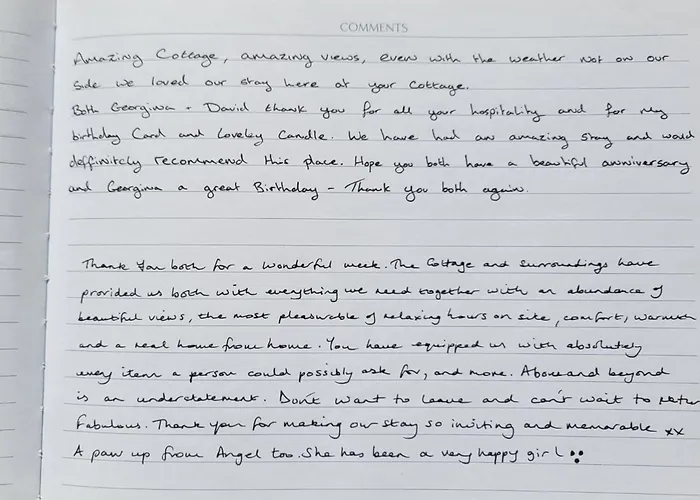 COMMENTS
Amazing Cottage, amazing views, even with the weather not on our
side we loved our stay here at your cottage.
Both Georgina + David thank you for all your hospitality and for my
birthday Card and Loveley Candle. We have had an amazing stay and would
deffinitely recommend this place. Hope you both have a beautiful anniversary
and Georgina a great Birthday - Thank you both again.
Thank you both for a wonderful week. The Cottage and surroundings have
provided us both with everything we need together with an abundance of
beautiful views, the most pleasurable of relaxing hours on site, comfort, warmth
and a real home from home. You have equipped us with absolutely
every item a person could possibly ask for, and more. Above and beyond
is an understatement. Don't want to leave and can't wait to retur
Fabulous. Thank you for making our stay so inviting and memorable xx
A paw up from Angel too. She has been a very happy girl